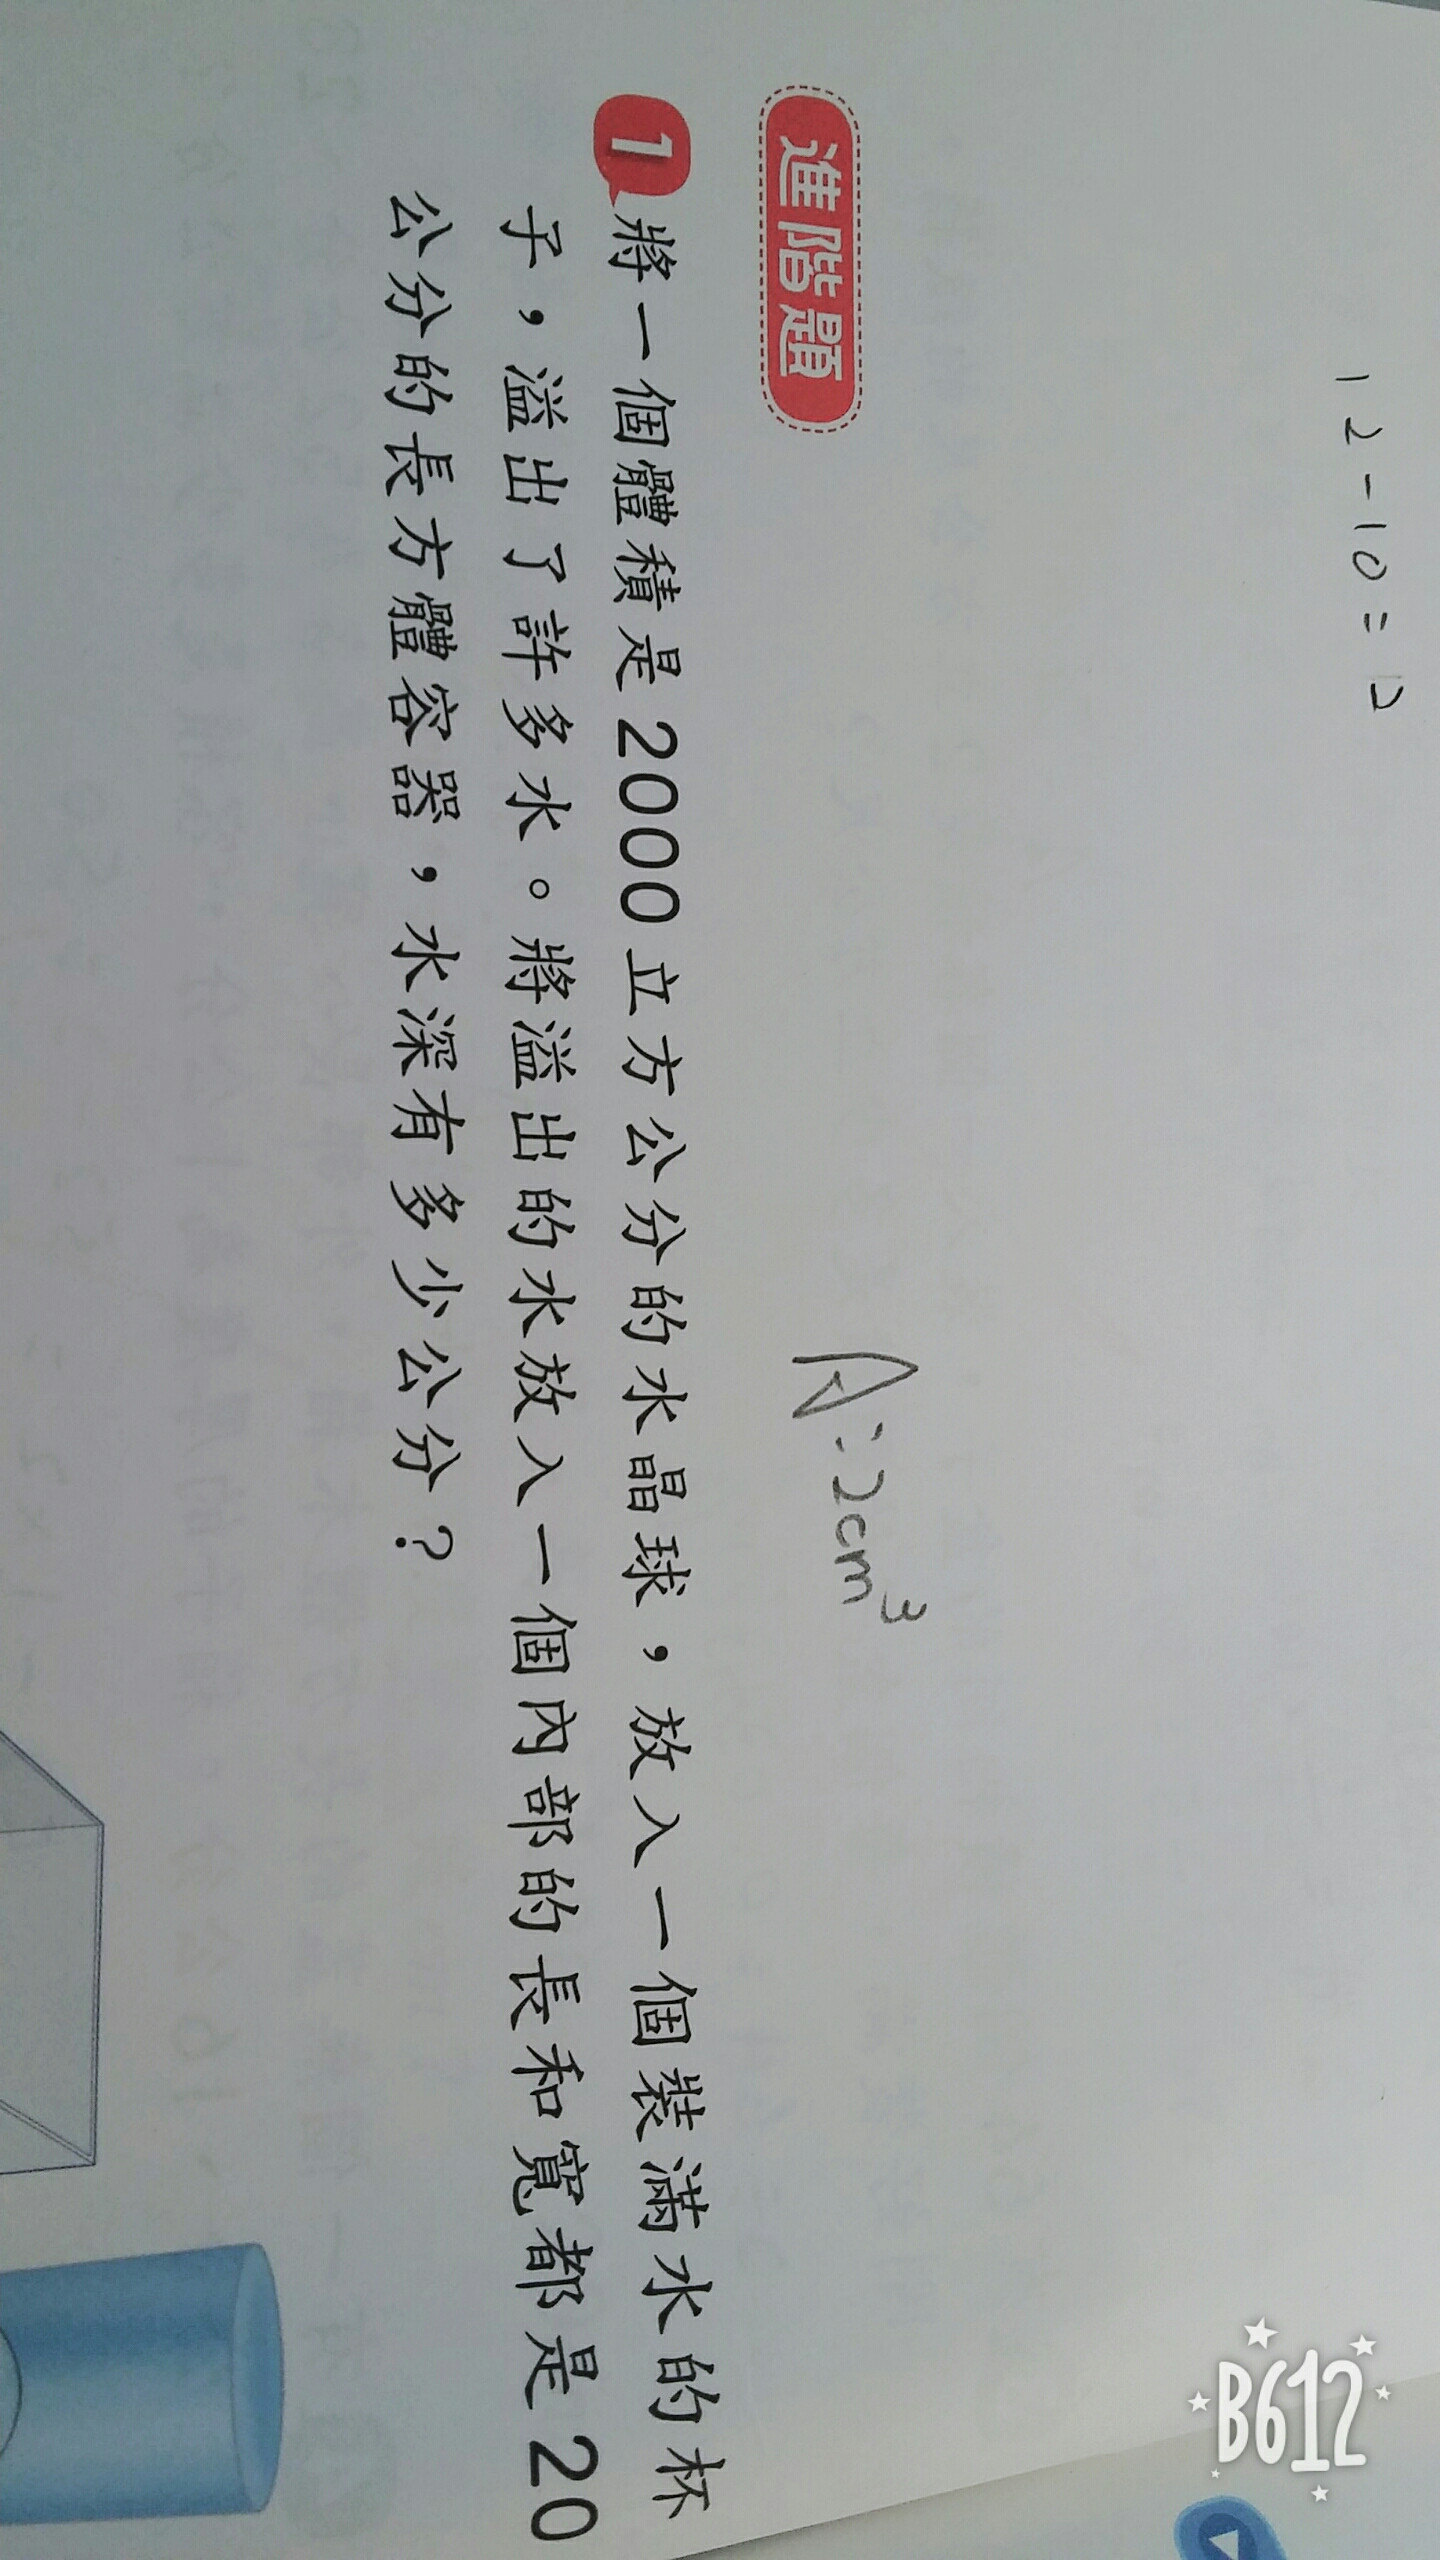 12-10=2
A:2cm³
進階題
1 將一個體積是2000立方公分的水晶球,放入一個裝滿水的杯
子,溢出了許多水。將溢出的水放入一個內部的長和寬都是20
公分的長方體容器,水深有多少公分?
B612